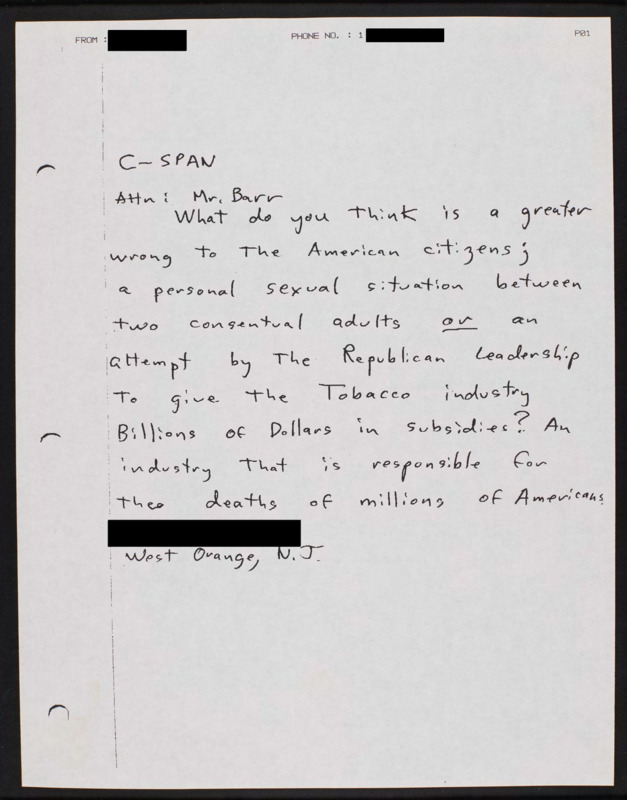 FROM :
PHONE NO. : 1
P01
C-SPAN
Attn: Mr. Barr
What do you think is a greater
wrong to The American citizens;
a personal sexual situation between
two consentual adults or an
attempt by The Republican Leadership
To give the Tobacco industry
Billions of Dollars in subsidies? An
industry that is responsible for
the deaths of millions of Americans
West Orange, N.J.